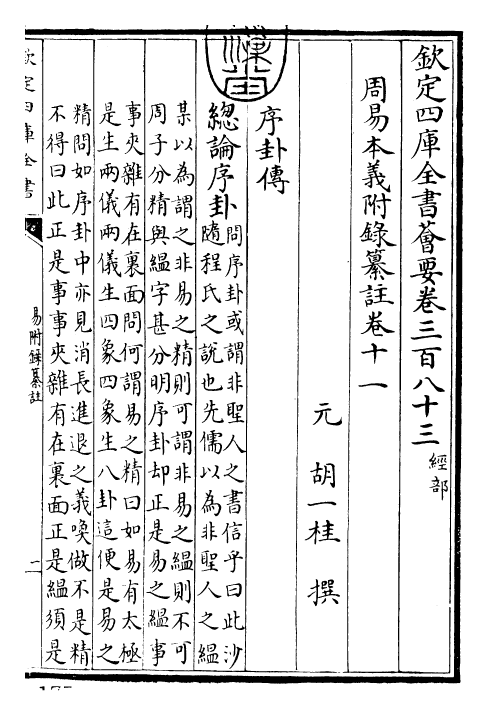 欽定四庫全書薈要卷三百八十三 經部
周易本義附錄纂註卷十一
元 胡一桂 撰
序卦傳
總論序卦 問序卦或謂非聖人之書信乎曰此沙
隨程氏之說也先儒以為非聖人之緼
某以為謂之非易之精則可謂非易之緼則不可
周子分精與緼字甚分明序卦却正是易之緼事
事夾雜有在裏面問何謂易之精曰如易有太極
是生兩儀兩儀生四象四象生八卦這便是易之
精問如序卦中亦見消長進退之義喚做不是精
不得曰此正是事事夾雜有在裏面正是緼須是
欽定四庫全書
易附錄纂註